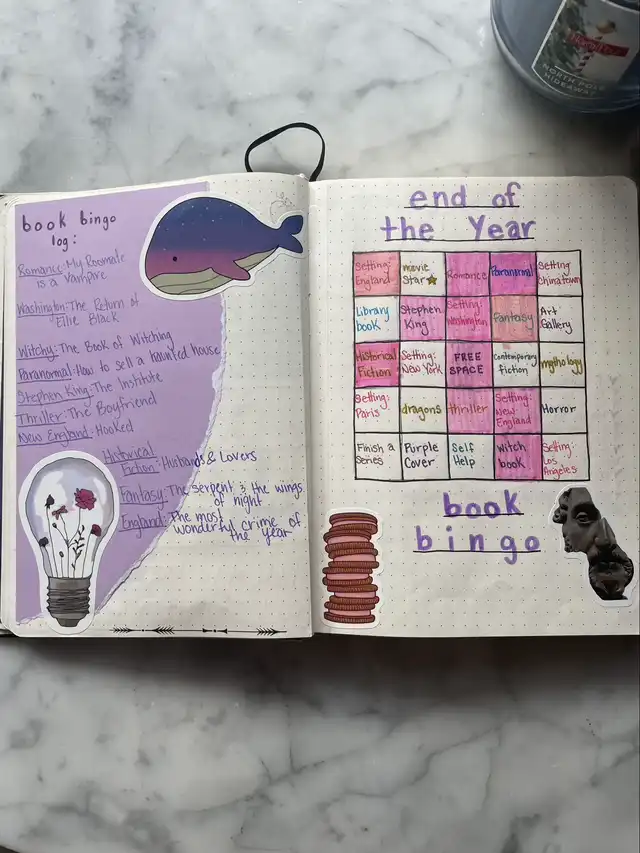 book bingo
log:
Romance: My Roommate
is a Vampire
Washington: The Return of
Ellie Black
Witchy: The Book of Witching
Paranormal: How to sell a haunted house
Stephen King: The Institute
Thriller: The Boyfriend
New England: Hooked
Historical
Fiction: Husbands & Lovers
Fantasy: The serpent & the wings
of night
England: The most
wonderful crime of
the year
end of
the Year
Setting: England
movie Star
Romance
Paranormal
Setting Chinatown
Library book
Stephen King
Setting: Washington
Fantasy
Art Gallery
Historical Fiction
Setting: New York
FREE SPACE
contemporary fiction
mythology
Setting: Paris
dragons
thriller
Setting: New England
Horror
Finish a Series
Purple Cover
Self Help
Witch book
Setting: Los Angeles
book
bingo
NORTH POLE
HIDEAWAY